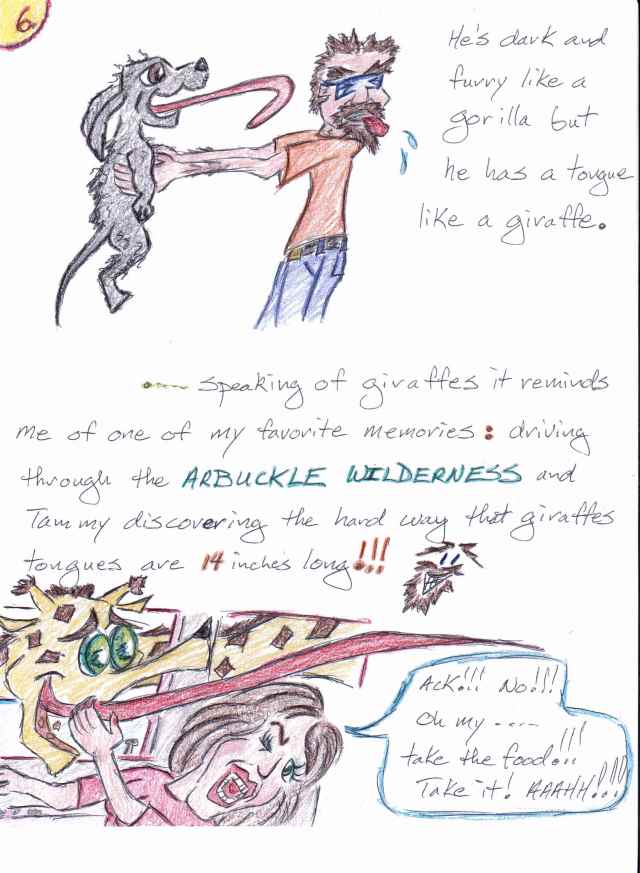 6.
He's dark and
furry like a
gorilla but
he has a tongue
like a giraffe.
speaking of giraffes it reminds
me of one of my favorite memories: driving
through the ARBUCKLE WILDERNESS and
Tammy discovering the hard way that giraffes
tongues are 14 inches long!!!
Ack!!! No!!!
Oh my ----
take the food!!!
Take it! AAAHH!!!